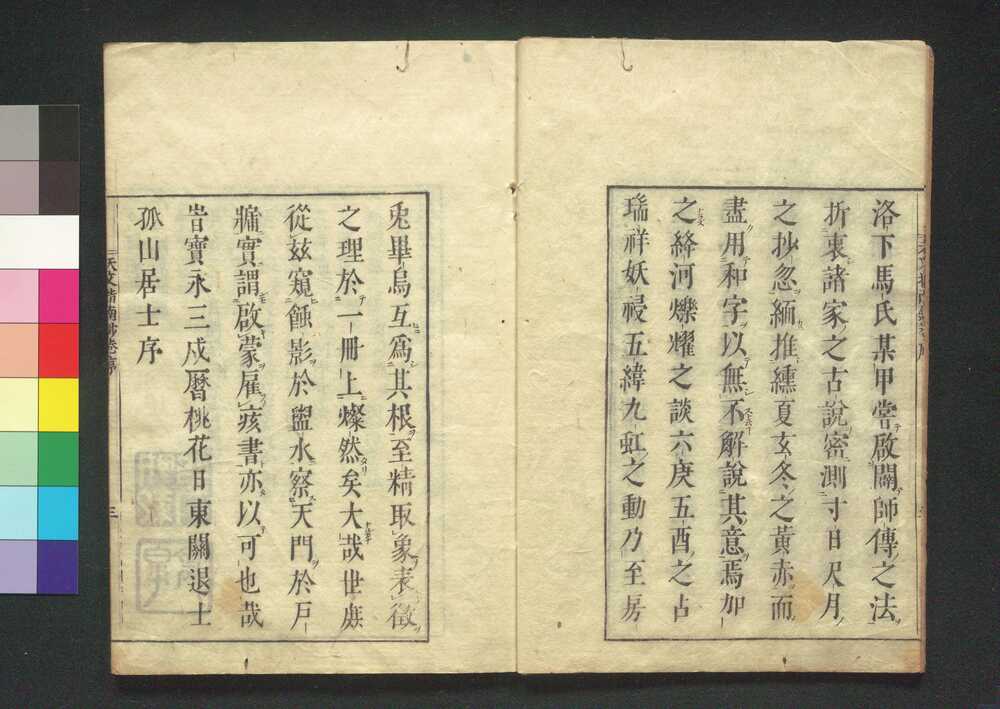 洛下馬氏某甲嘗啟關師傳之法
折衷諸家之古說密測寸日尺月
之抄忽緬推纁夏玄冬之黃赤而
盡用和字以無不解說其意焉加
之絳河爍耀之談六庚五酉之占
瑞祥妖祲五緯九虹之動乃至房
兎畢烏互爲其根至精取象表徵
之理於一冊上燦然矣大哉世庶
從茲窺蝕影於盥水察天門於戶
牖實謂啟蒙雇痎書亦以可也哉
旹寶永三戍曆桃花日東關退士
孤山居士序
天文指南抄卷序
三